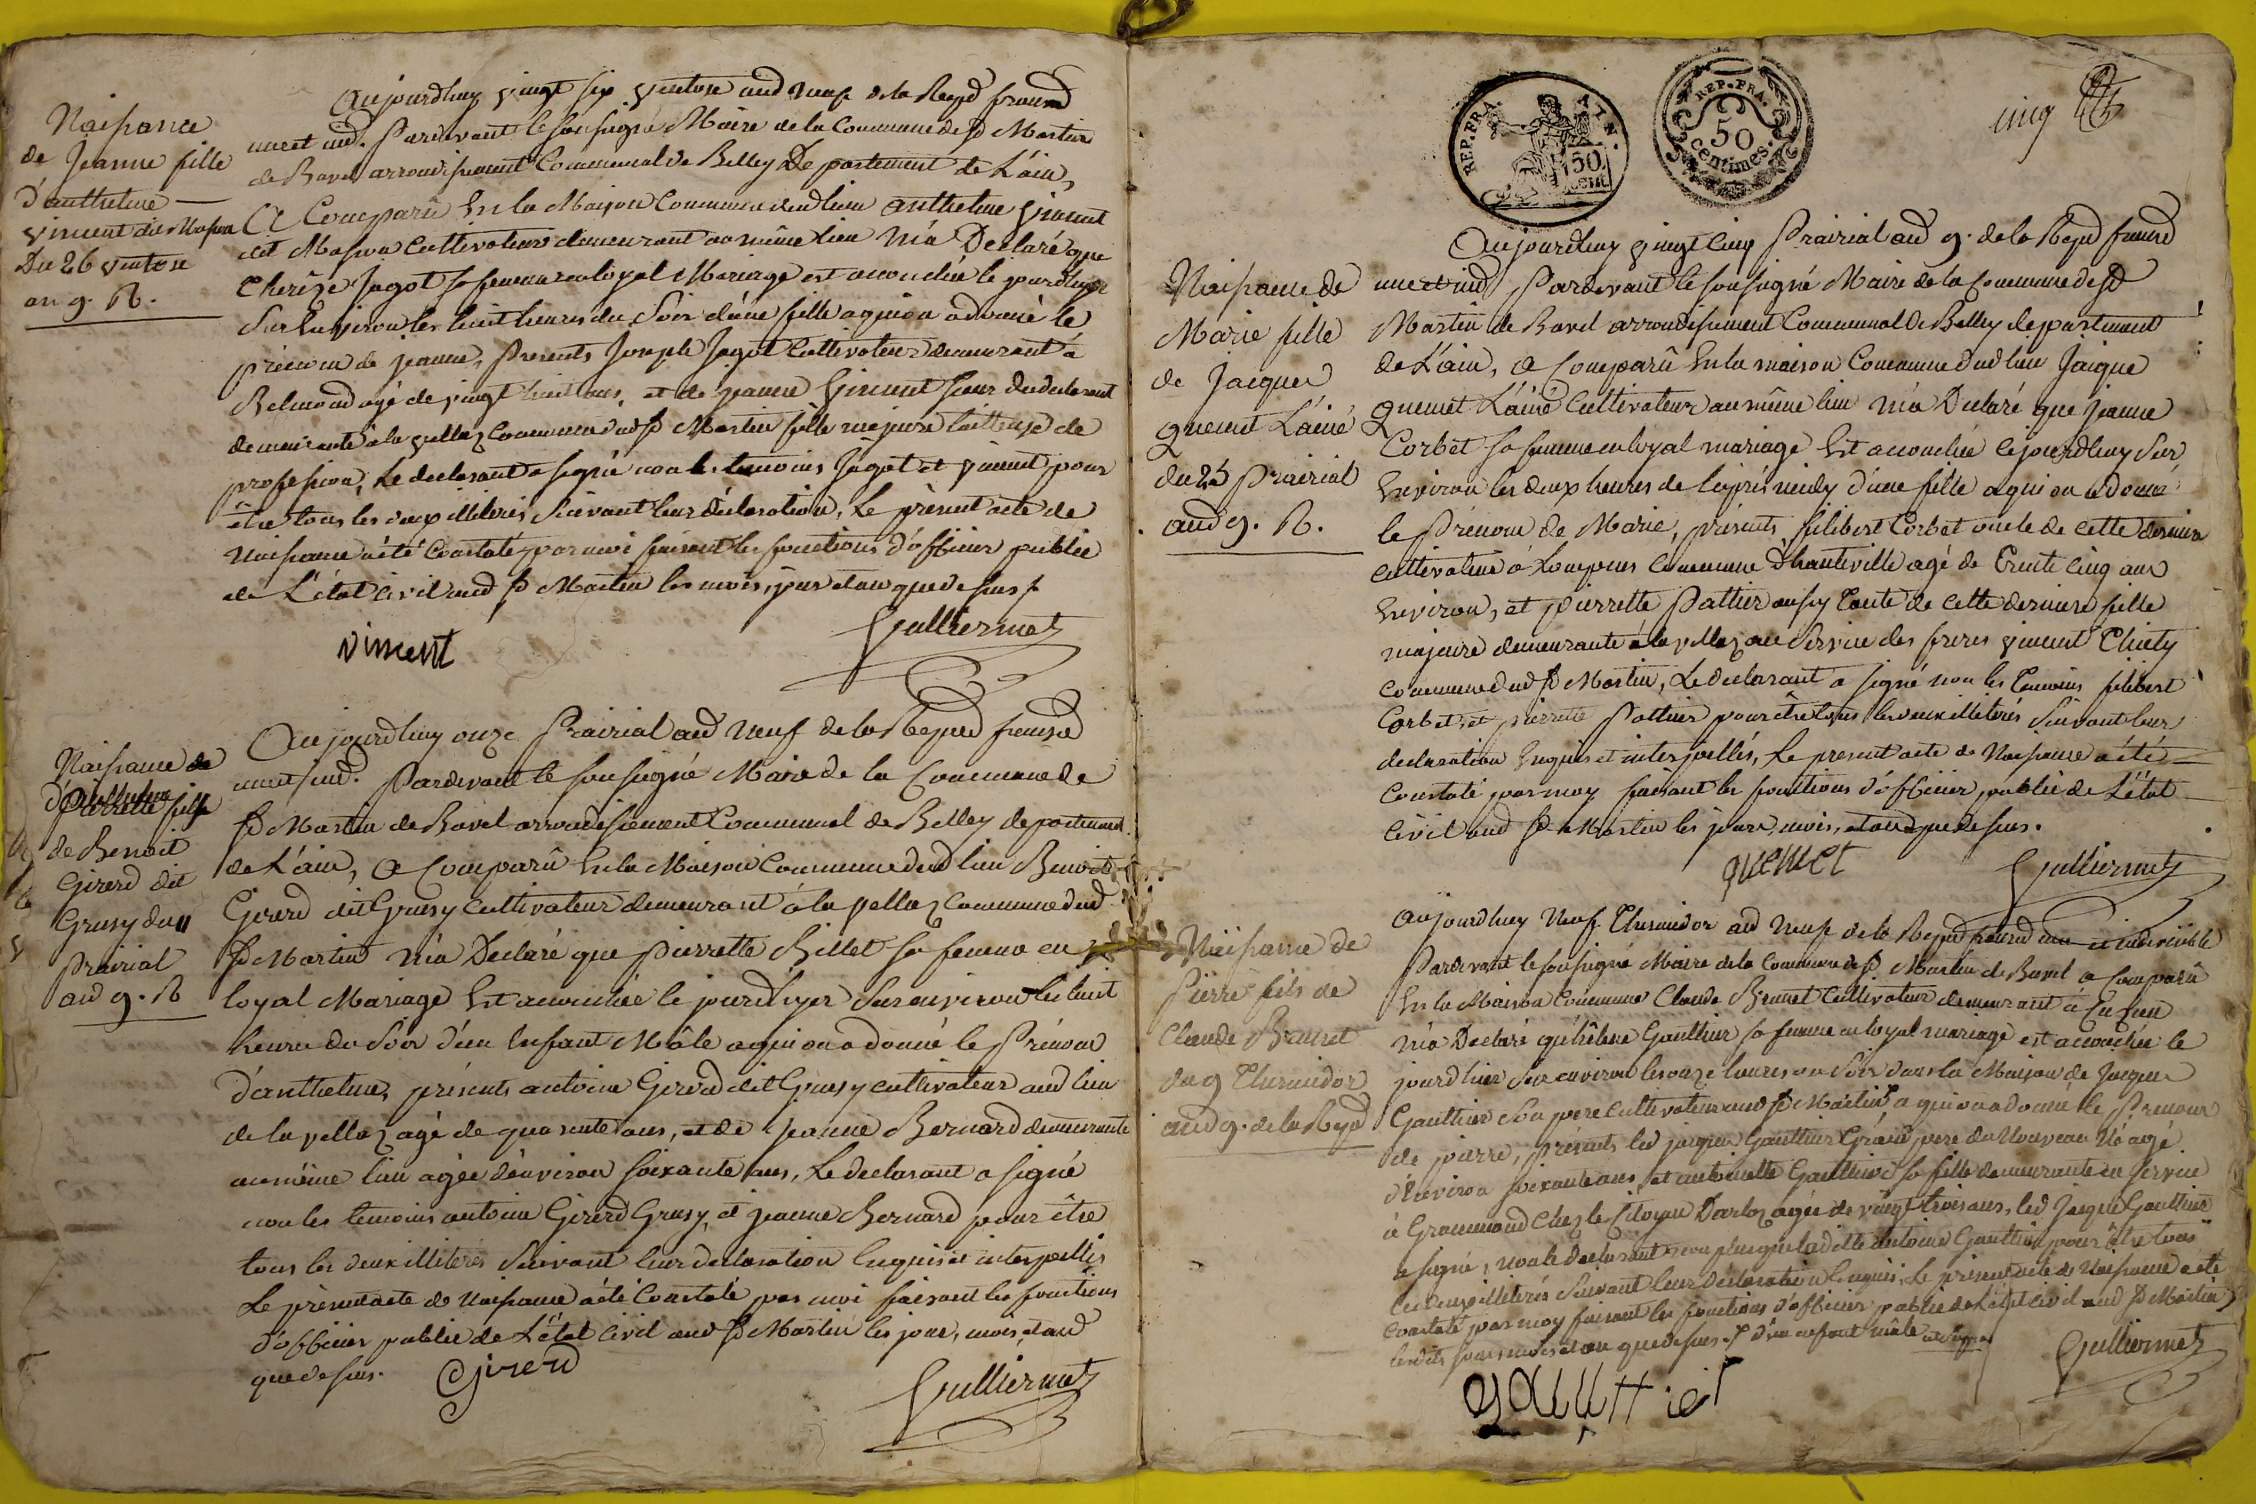 Naissance
de Jeanne fille
d'anthelme
vincent dit Masson
Du 26 ventose
an 9. R.
Aujourdhuy vingt six ventose and neuf de la Repd francd
une et ind. Pardevant le soussigné Maire de la Commune de St Martin
de Bavel arrondissement Communal de Belley Departement de L'ain,
a Comparû En la Maison Commune dud lieu anthelme vincent
dit Masson Cultivateur demeurant au même lieu m'a Déclaré que
Therèze Jagot sa femme en loyal Mariage est accouchée le jourdhyer
Sur Environ les huit heures du Soir d'une fille a qui on a donné le
prénom de jeanne, Presents Joseph Jagot Cultivateur demeurant à
Belmond agé de vingt huit ans, et de jeanne vincent soeur du declarant
demeurante à la vellaz Commune dud St Martin fille majeure tailleuse de
profession, Le declarant a signé non les temoins Jagot et vincent pour
être tous les deux illiterés Suivant leur déclaration, Le présent acte de
Naissance a été Constaté par moi faisant les fonctions d'officier public
de L'état Civil aud St Martin les mois, jour et an que dessus
vincent
Gulliermet
Naissance de
d'anthelme
Pierrette fille
de Benoit
Girerd dit
Grusy du 11
Prairial
and 9. R
Aujourdhuy onze Prairial and Neuf de la Repud francd
une et ind. Pardevant le soussigné Maire de la Commune de
St Martin de Bavel arrondissement Communal de Belley departement
de L'ain, a Comparû En la Maison Commune dud lieu Benoit
Girerd dit Grusy Cultivateur demeurant à la vellaz Commune dud
St Martin m'a Déclaré que Pierrette Billet sa femme en
loyal Mariage Est accouchée le jourdhyer Sur environ les huit
heures du Soir d'un Enfant Mâle a qui on a donné le Prénom
d'anthelme, présents antoine Girerd dit Grusy cultivateur aud lieu
de la vellaz agé de quarante ans, et de jeanne Bernard demeurante
au même lieu agée d'environ soixante ans, Le declarant a signé
non les temoins antoine Girerd Grusy, et jeanne Bernard pour être
tous les deux illiterés Suivant leur declaration Enquis et interpellés
Le présent acte de Naissance a été Constaté par moi faisant les fonctions
d'officier public de L'état Civil aud St Martin les jour, mois et and
que dessus.
Girerd
Gulliermet
REP. FRA.
AIN.
50
cent
REP. FRA.
50
centimes.
cinq
Naissance de
Marie fille
de Jacques
quenet L'ainé
du 25 prairial
and 9. R.
Aujourdhuy vingt cinq Prairial and 9. de la Repud francd
une et ind, Pardevant le soussigné Maire de la Commune de St
Martin de Bavel arrondissement Communal de Belley departement
de L'ain, a Comparû En la maison Commune dud lieu Jaique
quenet L'ainé Cultivateur au même lieu m'a Déclaré que jeanne
Corbet sa femme en loyal mariage Est accouchée cejourdhuy Sur
Environ les deux heures de l'après midy d'une fille a qui on a donné
le Prénom de Marie, présents filibert Corbet oncle de cette derniere
Cultivateur à Lompnes Commune d'hauteville agé de Trente cinq ans
Environ, et pierrette Pattier aussy Tante de cette derniere fille
majeure demeurante à la vellaz au Service des freres vincent Chinty
Commune dud St Martin, Le declarant a signé non les Temoins filibert
Corbet, et pierrette Pattier pour être tous les deux illiterés Suivant leur
declaration Enquis et interpellés, Le present acte de Naissance a été
Constaté par moy faisant les fonctions d'officier public de L'état
Civil aud St Martin les jour, mois, et and que dessus.
quenet
Gulliermet
Naissance de
Pierre fils de
Claude Brunet
du 9 Thermidor
and 9. de la Repd
Aujourdhuy Neuf Thermidor and Neuf de la Repud francd une et indivisible
Pardevant le soussigné Maire de la Commune de St Martin de Bavel a Comparû
En la Maison Commune Claude Brunet Cultivateur demeurant à
m'a Déclaré qu'hélène Gauthier sa femme en loyal mariage est accouchée le
jourdhier Sur environ les onze heures du Soir dans la Maison de Jacque
Gauthier Son pere Cultivateur aud St Martin, a qui on a donné le Prenom
de pierre, présents led jacque Gauthier Grand pere du Nouveau Né agé
d'Environ soixante ans et antoinette Gauthier sa fille demeurante en service
à Grammond Chez le Citoyen Darloz agée de vingt trois ans, led Jacque Gauthier
a signé, non le declarant non plus que ladite Gauthier pour être tous
les deux illiterés Suivant leur déclaration Enquis, Le présent acte de Naissance a été
Constaté par moy faisant les fonctions d'officier public de L'état Civil aud St Martin
lesdits jour mois et an que dessus. d'un enfant mâle
Gulliermet
gauttier